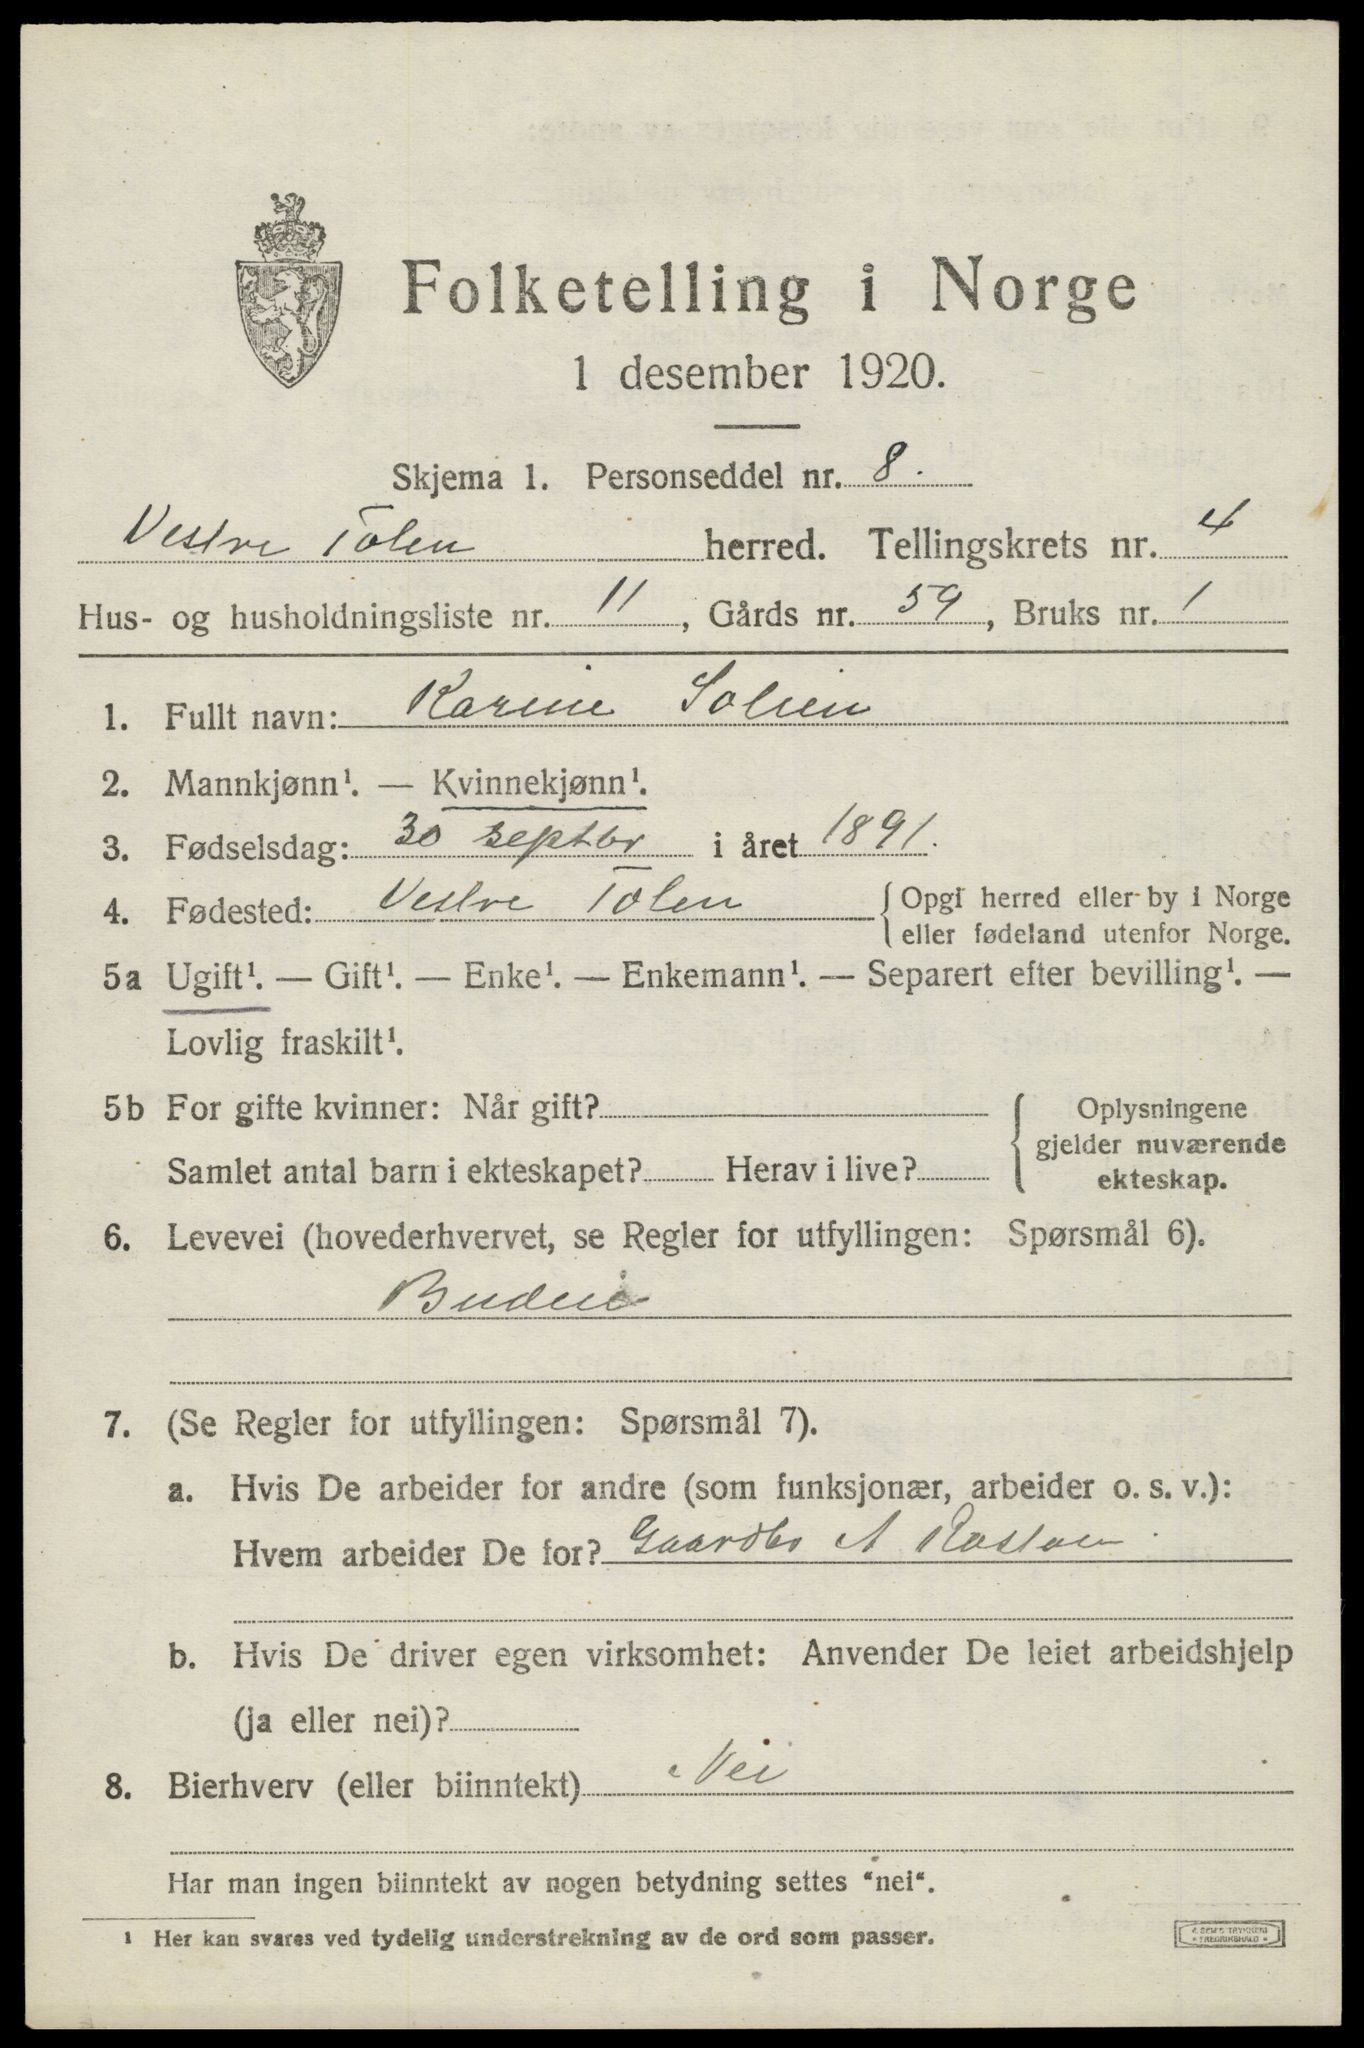 Folketelling i Norge
1 desember 1920.
Skjema 1. Personseddel nr. 8.
Vestre Toten herred. Tellingskrets nr. 4
Hus- og husholdningsliste nr. 11, Gårds nr. 59, Bruks nr. 1
1. Fullt navn: Karine Solien
2. Mannkjønn¹. — Kvinnekjønn¹.
3. Fødselsdag: 30 septbr i året 1891.
4. Fødested: Vestre Toten {Opgi herred eller by i Norge
eller fødeland utenfor Norge.
5a Ugift¹. — Gift¹. — Enke¹. — Enkemann¹. — Separert efter bevilling¹. —
Lovlig fraskilt¹.
5b For gifte kvinner: Når gift?
Samlet antal barn i ekteskapet? Herav i live?
{Oplysningene
gjelder nuværende
ekteskap.
6. Levevei (hovederhvervet, se Regler for utfyllingen: Spørsmål 6).
Budeie
7. (Se Regler for utfyllingen: Spørsmål 7).
a. Hvis De arbeider for andre (som funksjonær, arbeider o. s. v.):
Hvem arbeider De for? Gaardbr A
b. Hvis De driver egen virksomhet: Anvender De leiet arbeidshjelp
(ja eller nei)?
8. Bierhverv (eller biinntekt) Nei
Har man ingen biinntekt av nogen betydning settes "nei".
¹ Her kan svares ved tydelig understrekning av de ord som passer.